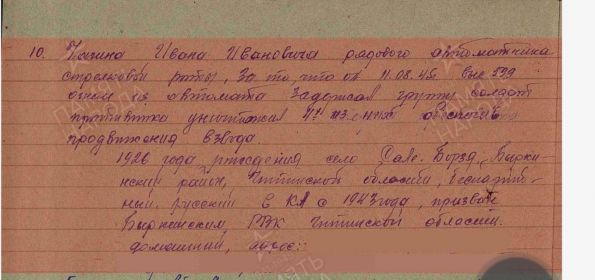 10. Чагина Ивана Ивановича рядового автоматчика
стрелковой роты, За то, что он 11.08.45. выс. 599
огнем из автомата задержал группу солдат
противтка уничтожил 4х из них обеспечив
продвижения взвода.
1926 года рождения село Борзя, Бырки-
нский район, Читинской области, беспартий-
ный, русский в КА с 1943 года, призван
Быркинским РВК Читинской области.
домашний, адрес: